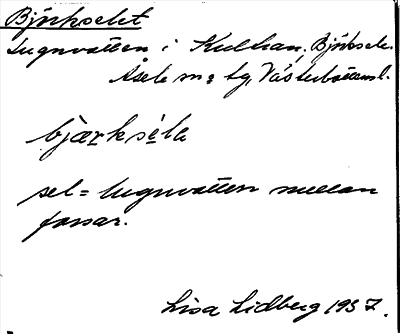 Björkselet
Lugnvatten i Kultran. Björksele.
Åsele sn o tg, Västerbottensl.
bjærkséle
sel = lugnvatten mellan
forsar.
Lisa Lidberg 1937.